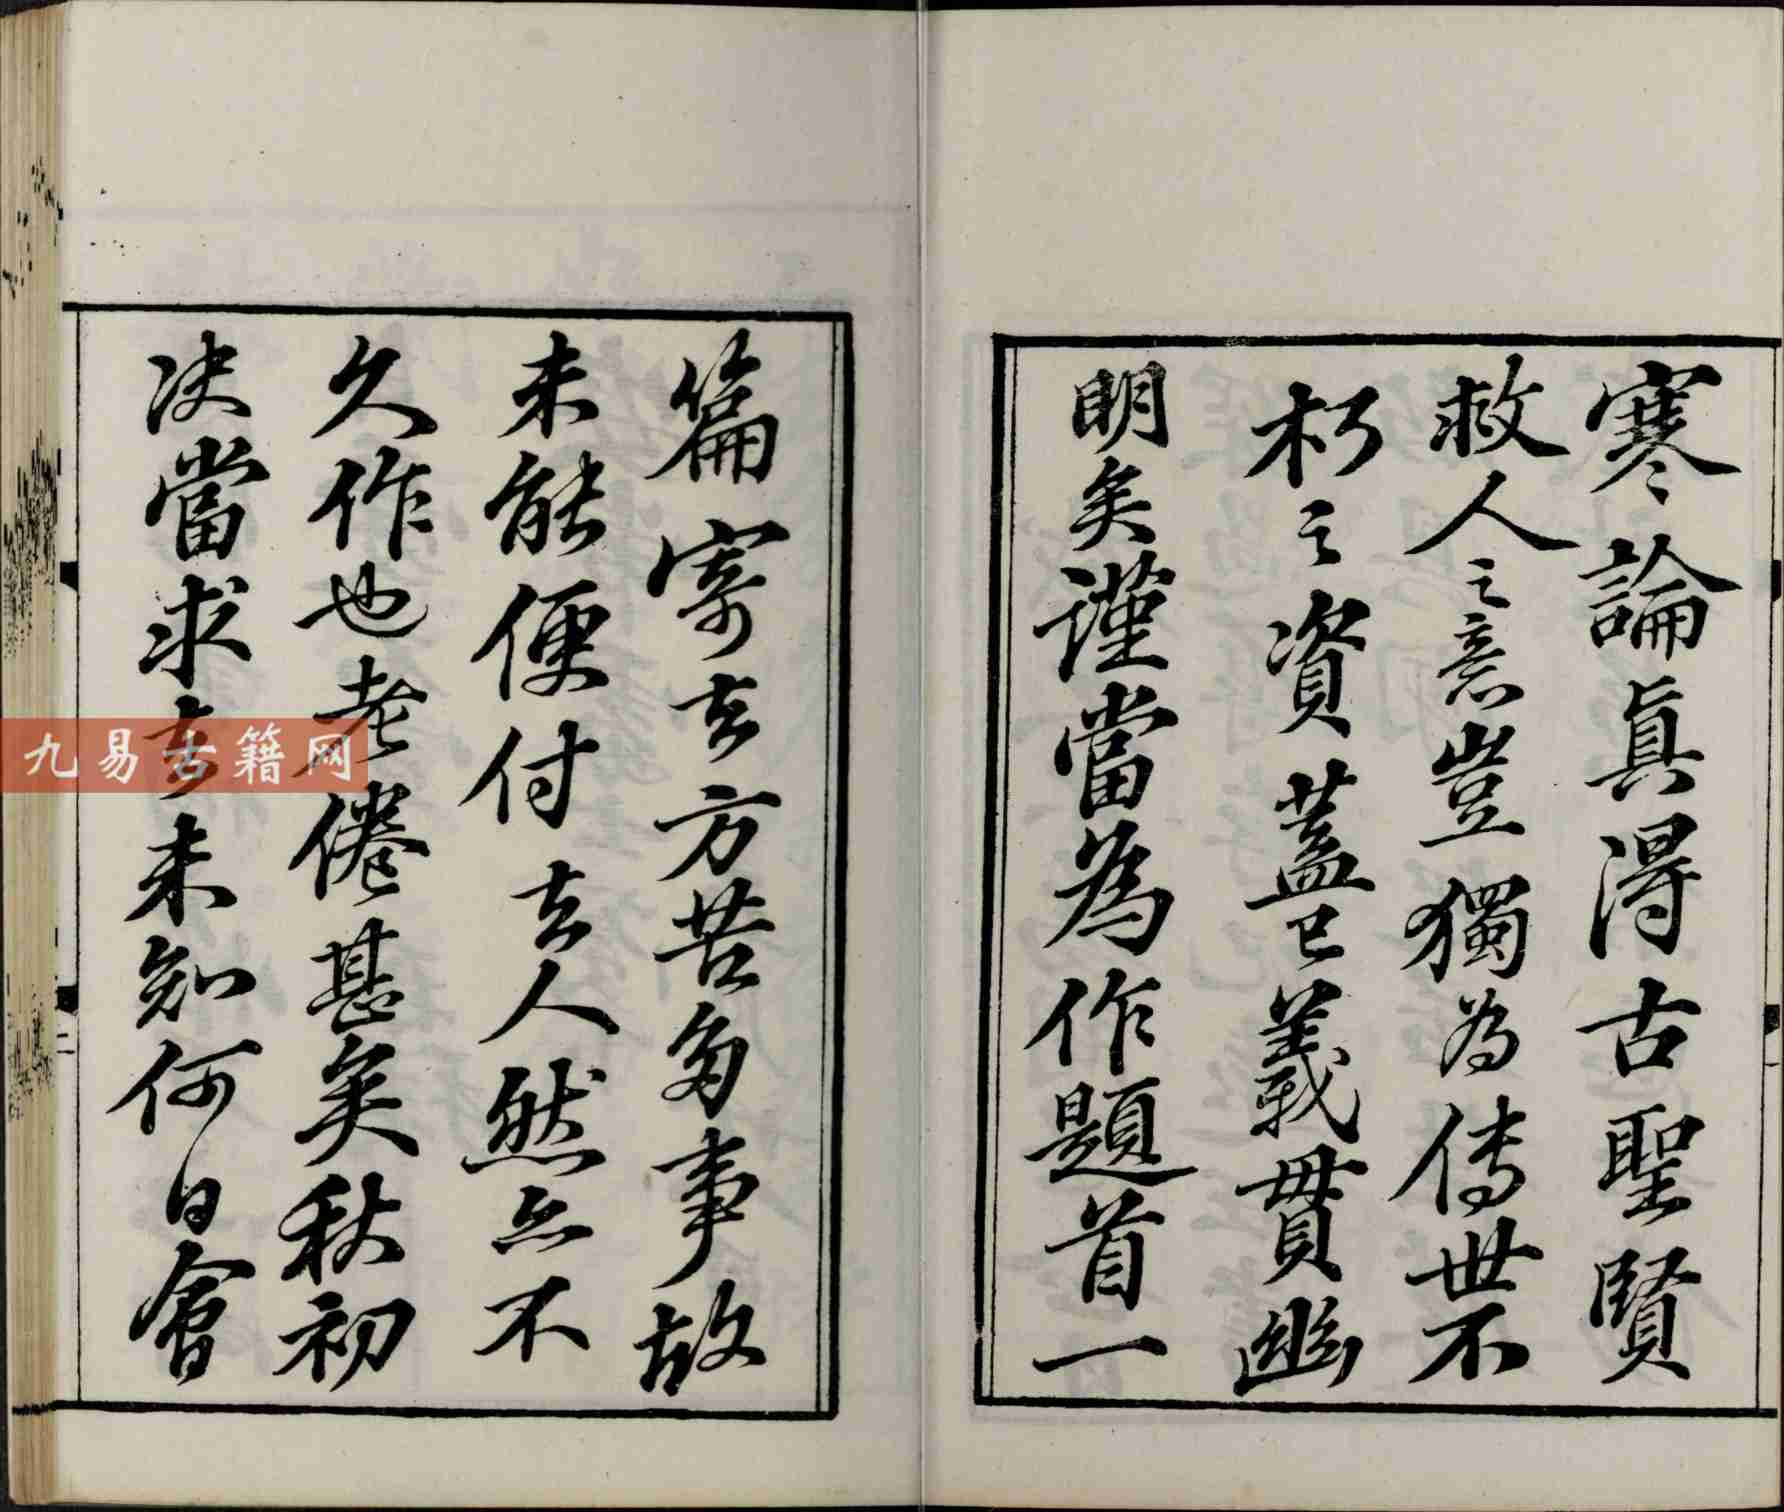 寒論真得古聖賢
救人之意豈獨為傳世不
朽之資蓋已義貫幽
明矣謹當為作題首一
篇寄去方苦多事故
未能便付去人然亦不
久作也老倦甚矣秋初
决當求去未知何日會
九易古籍网